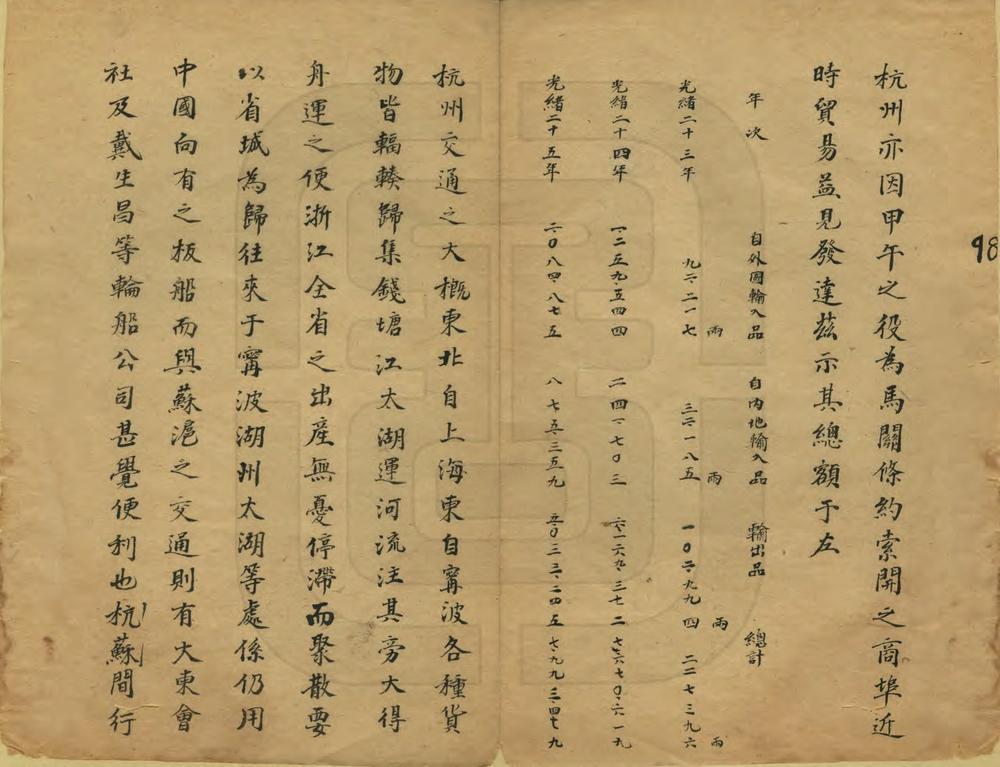 98
杭州亦因甲午之役為馬關條約索開之商埠近
時貿易益見發達茲示其總額于左
年次 自外國輸入品 自內地輸入品 輸出品 總計
光緒二十三年 兩 兩 一〇二、九九四兩 二二七三九六兩
光緒二十四年 二四一、七〇三
光緒二十五年 二、〇八四、八七五 八七五、三五九
杭州交通之大概東北自上海東自甯波各種貨
物皆輻輳歸集錢塘江太湖運河流注其旁大得
舟運之便浙江全省之出產無憂停滯而聚散要
以省城為歸往來于甯波湖州太湖等處係仍用
中國向有之板船而與蘇滬之交通則有大東會
社及戴生昌等輪船公司甚覺便利也杭蘇間行